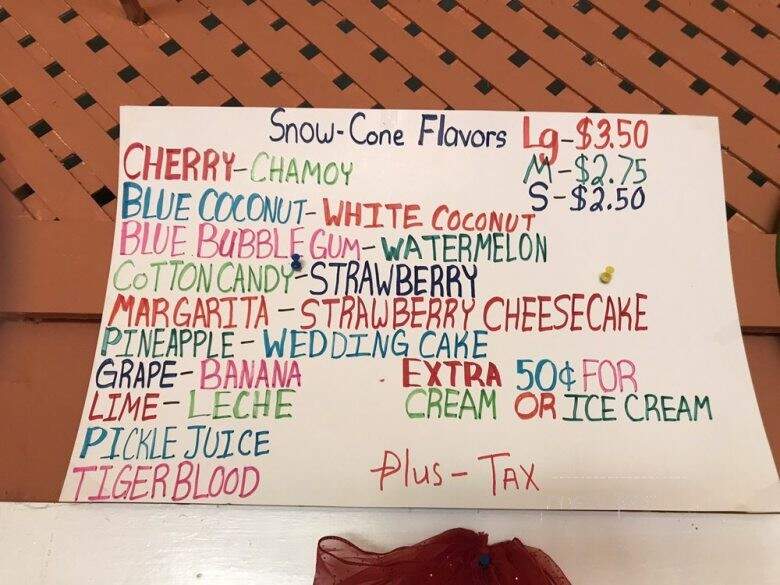 Snow-Cone Flavors Lg-$3.50
M-$2.75
S-$2.50
CHERRY-CHAMOY
BLUE COCONUT-WHITE COCONUT
BLUE BUBBLE GUM-WATERMELON
COTTON CANDY-STRAWBERRY
MARGARITA-STRAWBERRY CHEESECAKE
PINEAPPLE-WEDDING CAKE
GRAPE-BANANA
LIME-LECHE
PICKLE JUICE
TIGER BLOOD
EXTRA 50¢ FOR
CREAM OR ICE CREAM
Plus-TAX